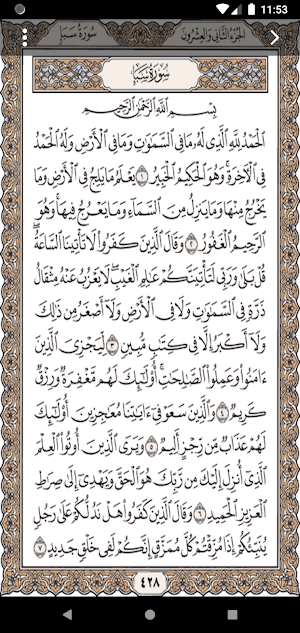 11:53
سُورَةُ سَبَإٍ
الجُزْءُ الثَّانِي وَالعِشْرُونَ
سُورَةُ سَبَإٍ
بِسْمِ اللَّهِ الرَّحْمَٰنِ الرَّحِيمِ
الْحَمْدُ لِلَّهِ الَّذِي لَهُ مَا فِي السَّمَاوَاتِ وَمَا فِي الْأَرْضِ وَلَهُ الْحَمْدُ
فِي الْآخِرَةِ ۚ وَهُوَ الْحَكِيمُ الْخَبِيرُ ١ يَعْلَمُ مَا يَلِجُ فِي الْأَرْضِ وَمَا
يَخْرُجُ مِنْهَا وَمَا يَنزِلُ مِنَ السَّمَاءِ وَمَا يَعْرُجُ فِيهَا ۚ وَهُوَ
الرَّحِيمُ الْغَفُورُ ٢ وَقَالَ الَّذِينَ كَفَرُوا لَا تَأْتِينَا السَّاعَةُ ۖ
قُلْ بَلَىٰ وَرَبِّي لَتَأْتِيَنَّكُمْ عَالِمِ الْغَيْبِ ۖ لَا يَعْزُبُ عَنْهُ مِثْقَالُ
ذَرَّةٍ فِي السَّمَاوَاتِ وَلَا فِي الْأَرْضِ وَلَا أَصْغَرُ مِن ذَٰلِكَ
وَلَا أَكْبَرُ إِلَّا فِي كِتَابٍ مُّبِينٍ ٣ لِّيَجْزِيَ الَّذِينَ
آمَنُوا وَعَمِلُوا الصَّالِحَاتِ ۚ أُولَٰئِكَ لَهُم مَّغْفِرَةٌ وَرِزْقٌ
كَرِيمٌ ٤ وَالَّذِينَ سَعَوْ فِي آيَاتِنَا مُعَاجِزِينَ أُولَٰئِكَ
لَهُمْ عَذَابٌ مِّن رِّجْزٍ أَلِيمٌ ٥ وَيَرَى الَّذِينَ أُوتُوا الْعِلْمَ
الَّذِي أُنزِلَ إِلَيْكَ مِن رَّبِّكَ هُوَ الْحَقَّ وَيَهْدِي إِلَىٰ صِرَاطِ
الْعَزِيزِ الْحَمِيدِ ٦ وَقَالَ الَّذِينَ كَفَرُوا هَلْ نَدُلُّكُمْ عَلَىٰ رَجُلٍ
يُنَبِّئُكُمْ إِذَا مُزِّقْتُمْ كُلَّ مُمَزَّقٍ إِنَّكُمْ لَفِي خَلْقٍ جَدِيدٍ ٧
٤٢٨